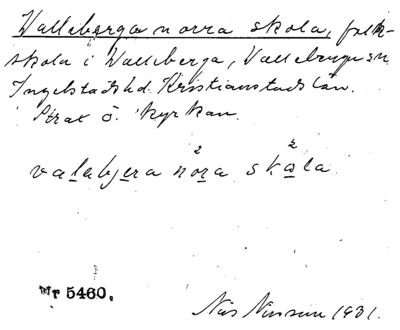 Valleberga norra skola, folk-
skola i Valleberga, Valleberga sn
Ingelstads hd. Kristianstads län.
Strax ö. kyrkan.
valabjera nora skola
Nr 5460.
Nils Nilsson 1931.